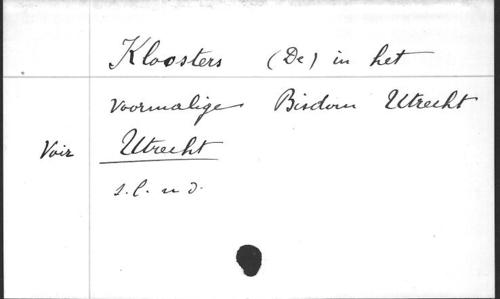 Kloosters (De) in het
voormalige Bisdom Utrecht
Voir Utrecht
s.l.n.d.